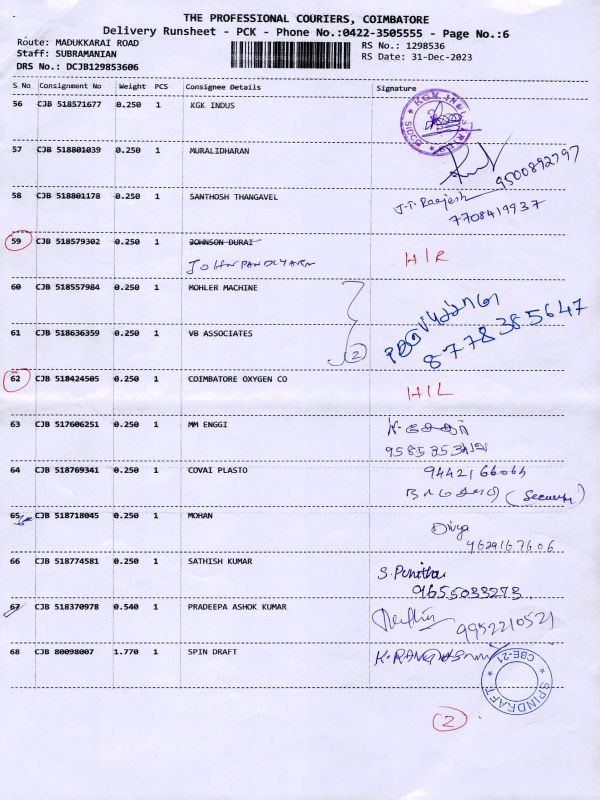 THE PROFESSIONAL COURIERS, COIMBATORE
Delivery Runsheet - PCK - Phone No.:0422-3505555 - Page No.:6
Route: MADUKKARAI ROAD
RS No.: 1298536
Staff: SUBRAMANIAN
RS Date: 31-Dec-2023
DRS No.: DCJB129853606
S No Consignment No Weight PCS Consignee Details Signature
56 CJB 518571677 0.250 1 KGK INDUS
SIDCO
57 CJB 518801039 0.250 1 MURALIDHARAN
9500892797
58 CJB 518801178 0.250 1 SANTHOSH THANGAVEL J.T. Raejesh
7708419937
59 CJB 518579302 0.250 1 JOHNSON DURAI
JOHNPANDIYARN H/R
60 CJB 518557984 0.250 1 MOHLER MACHINE
61 CJB 518636359 0.250 1 VB ASSOCIATES
2 8778385647
62 CJB 518424505 0.250 1 COIMBATORE OXYGEN CO
H/L
63 CJB 517606251 0.250 1 MM ENGGI
64 CJB 518769341 0.250 1 COVAI PLASTO 9442166064
(Security)
65 CJB 518718045 0.250 1 MOHAN
Divya
9629167606
66 CJB 518774581 0.250 1 SATHISH KUMAR
S. Punitha
9655033273
67 CJB 518370978 0.540 1 PRADEEPA ASHOK KUMAR
9952210521
68 CJB 80098007 1.770 1 SPIN DRAFT
CBE-21
SPINDRAFT
2